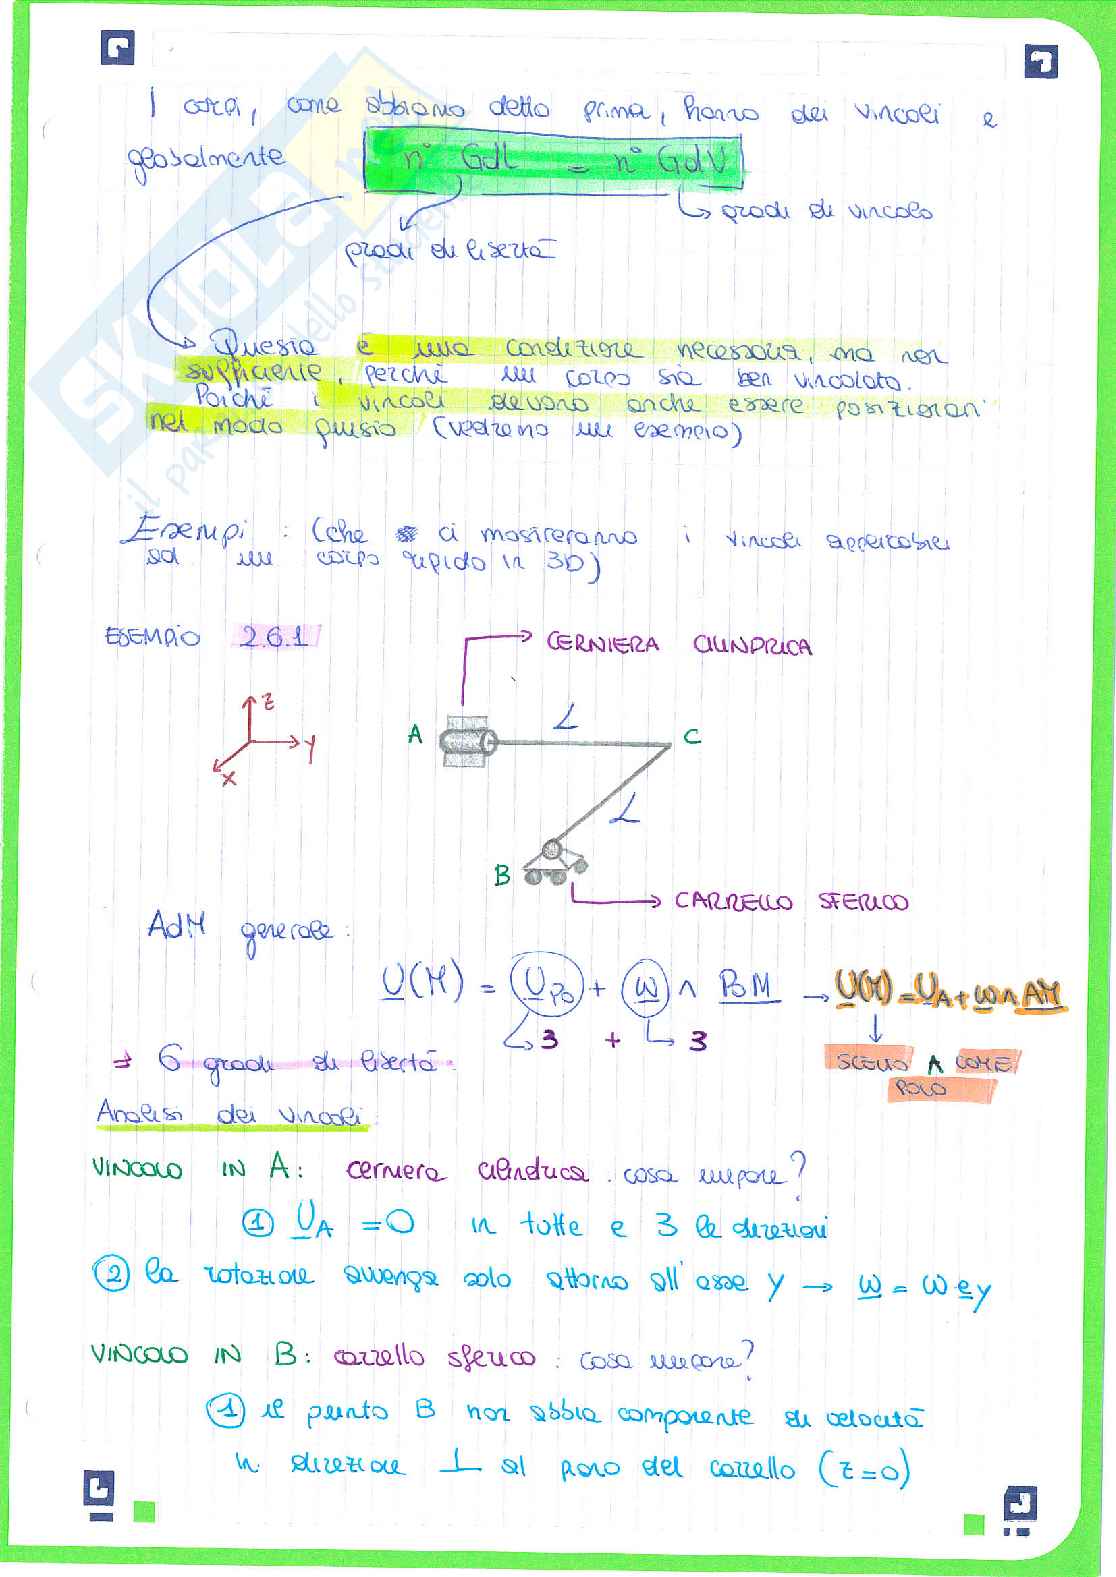 I corpi, come abbiamo detto prima, hanno dei vincoli e
globalmente n° GdL = n° GdV
gradi di vincolo
gradi di libertà
Questa è una condizione necessaria, ma non
sufficiente, perché un corpo sia ben vincolato.
Poiché i vincoli devono anche essere posizionati
nel modo giusto (vedremo un esempio)
Esempi : (che ci mostreranno i vincoli applicabili
ad un corpo rigido in 3D)
ESEMPIO 2.6.1
CERNIERA CILINDRICA
z
y
x
A
L
C
L
B
CARRELLO SFERICO
AdM generale :
U(M) = U_Po + ω ∧ PoM → U(M) = U_A + ω ∧ AM
3 + 3
SCELGO A COME
POLO
⇒ 6 gradi di libertà.
Analisi dei vincoli
VINCOLO IN A: cerniera cilindrica . cosa impone?
① U_A = 0 in tutte e 3 le direzioni
② la rotazione avvenga solo attorno all'asse y → ω = ω e_y
VINCOLO IN B: carrello sferico : cosa impone?
① il punto B non abbia componente di velocità
in direzione ⊥ al piano del carrello (z=0)
SKUOLA.net